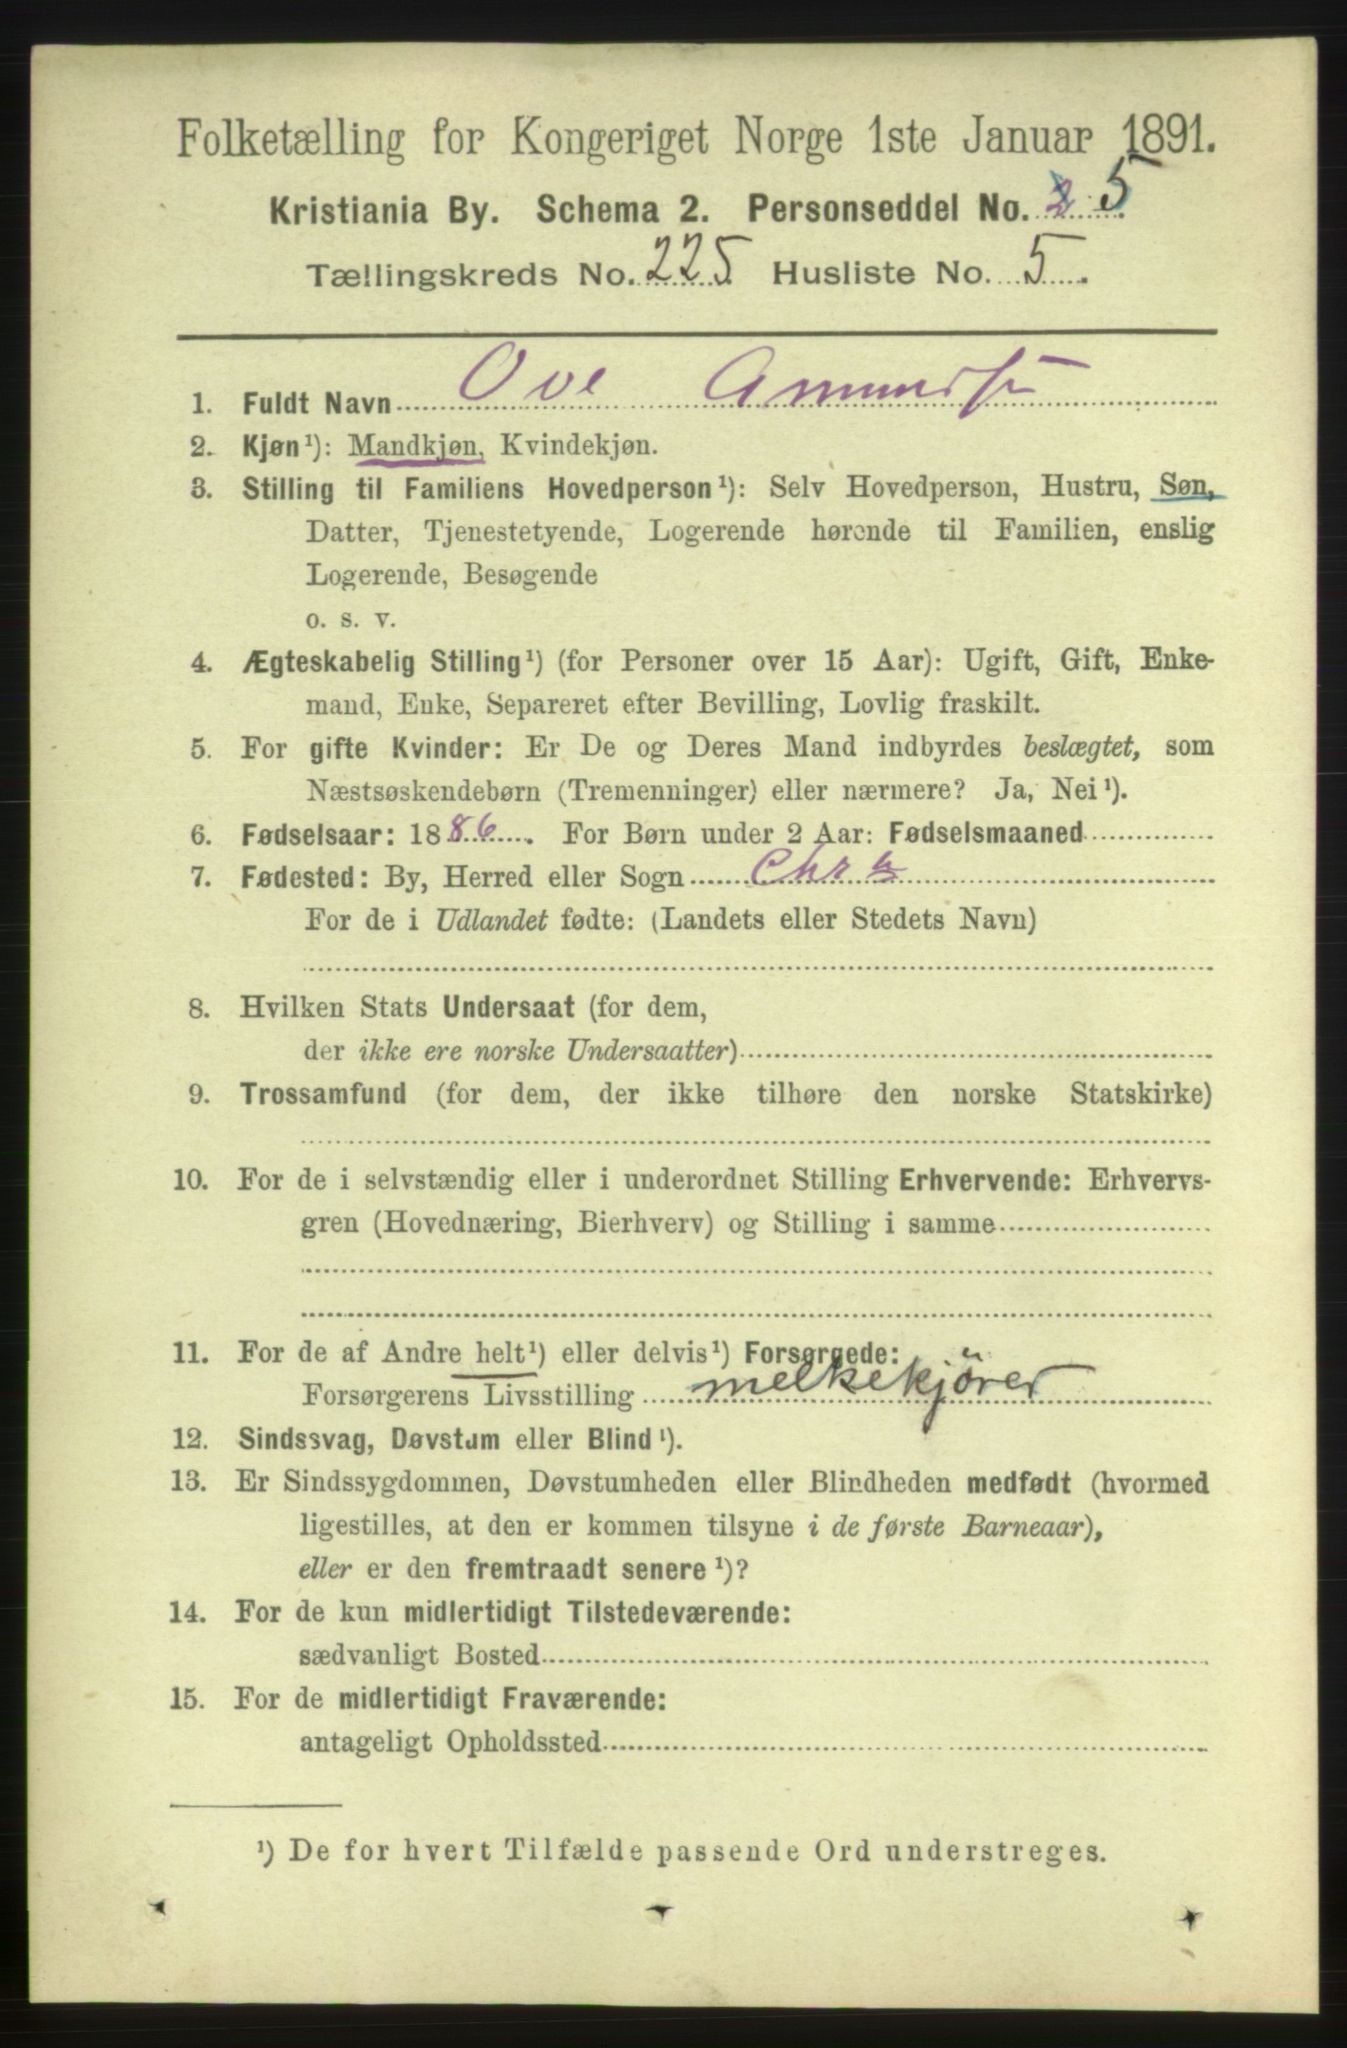 Folketælling for Kongeriget Norge 1ste Januar 1891.
Kristiania By. Schema 2. Personseddel No. 2 5
Tællingskreds No. 225 Husliste No. 5.
1. Fuldt Navn Ove Amundsen
2. Kjøn¹): Mandkjøn, Kvindekjøn.
3. Stilling til Familiens Hovedperson¹): Selv Hovedperson, Hustru, Søn,
Datter, Tjenestetyende, Logerende hørende til Familien, enslig
Logerende, Besøgende
o. s. v.
4. Ægteskabelig Stilling¹) (for Personer over 15 Aar): Ugift, Gift, Enke-
mand, Enke, Separeret efter Bevilling, Lovlig fraskilt.
5. For gifte Kvinder: Er De og Deres Mand indbyrdes beslægtet, som
Næstsøskendebørn (Tremenninger) eller nærmere? Ja, Nei¹).
6. Fødselsaar: 1886. For Børn under 2 Aar: Fødselsmaaned
7. Fødested: By, Herred eller Sogn Chr a
For de i Udlandet fødte: (Landets eller Stedets Navn)
8. Hvilken Stats Undersaat (for dem,
der ikke ere norske Undersaatter)
9. Trossamfund (for dem, der ikke tilhøre den norske Statskirke)
10. For de i selvstændig eller i underordnet Stilling Erhvervende: Erhvervs-
gren (Hovednæring, Bierhverv) og Stilling i samme
11. For de af Andre helt¹) eller delvis¹) Forsørgede:
Forsørgerens Livsstilling melkekjörer
12. Sindssvag, Døvstum eller Blind¹).
13. Er Sindssygdommen, Døvstumheden eller Blindheden medfødt (hvormed
ligestilles, at den er kommen tilsyne i de første Barneaar),
eller er den fremtraadt senere¹)?
14. For de kun midlertidigt Tilstedeværende:
sædvanligt Bosted
15. For de midlertidigt Fraværende:
antageligt Opholdssted
¹) De for hvert Tilfælde passende Ord understreges.